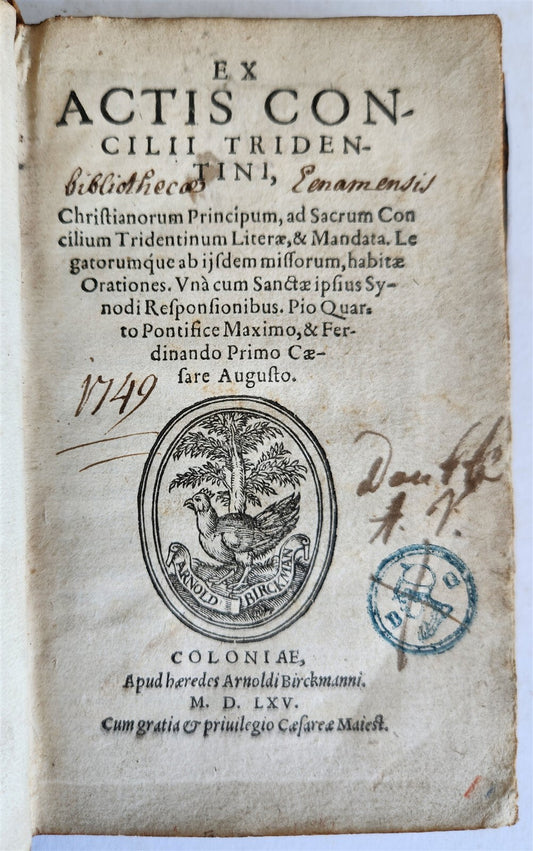 EX
ACTIS CON-
CILII TRIDEN-
TINI,
bibliothecæ Eenamensis
Chriſtianorum Principum, ad Sacrum Con
cilium Tridentinum Literæ, & Mandata. Le
gatorumque ab ijſdem miſſorum, habitæ
Orationes. Vnà cum Sanctæ ipſius Sy-
nodi Reſponſionibus. Pio Quar-
to Pontifice Maximo, & Fer-
dinando Primo Cæ-
ſare Auguſto.
1749
ARNOLD BIRCKMAN
COLONIAE,
Apud hæredes Arnoldi Birckmanni.
M. D. LXV.
Cum gratia & priuilegio Cæſareæ Maieſt.